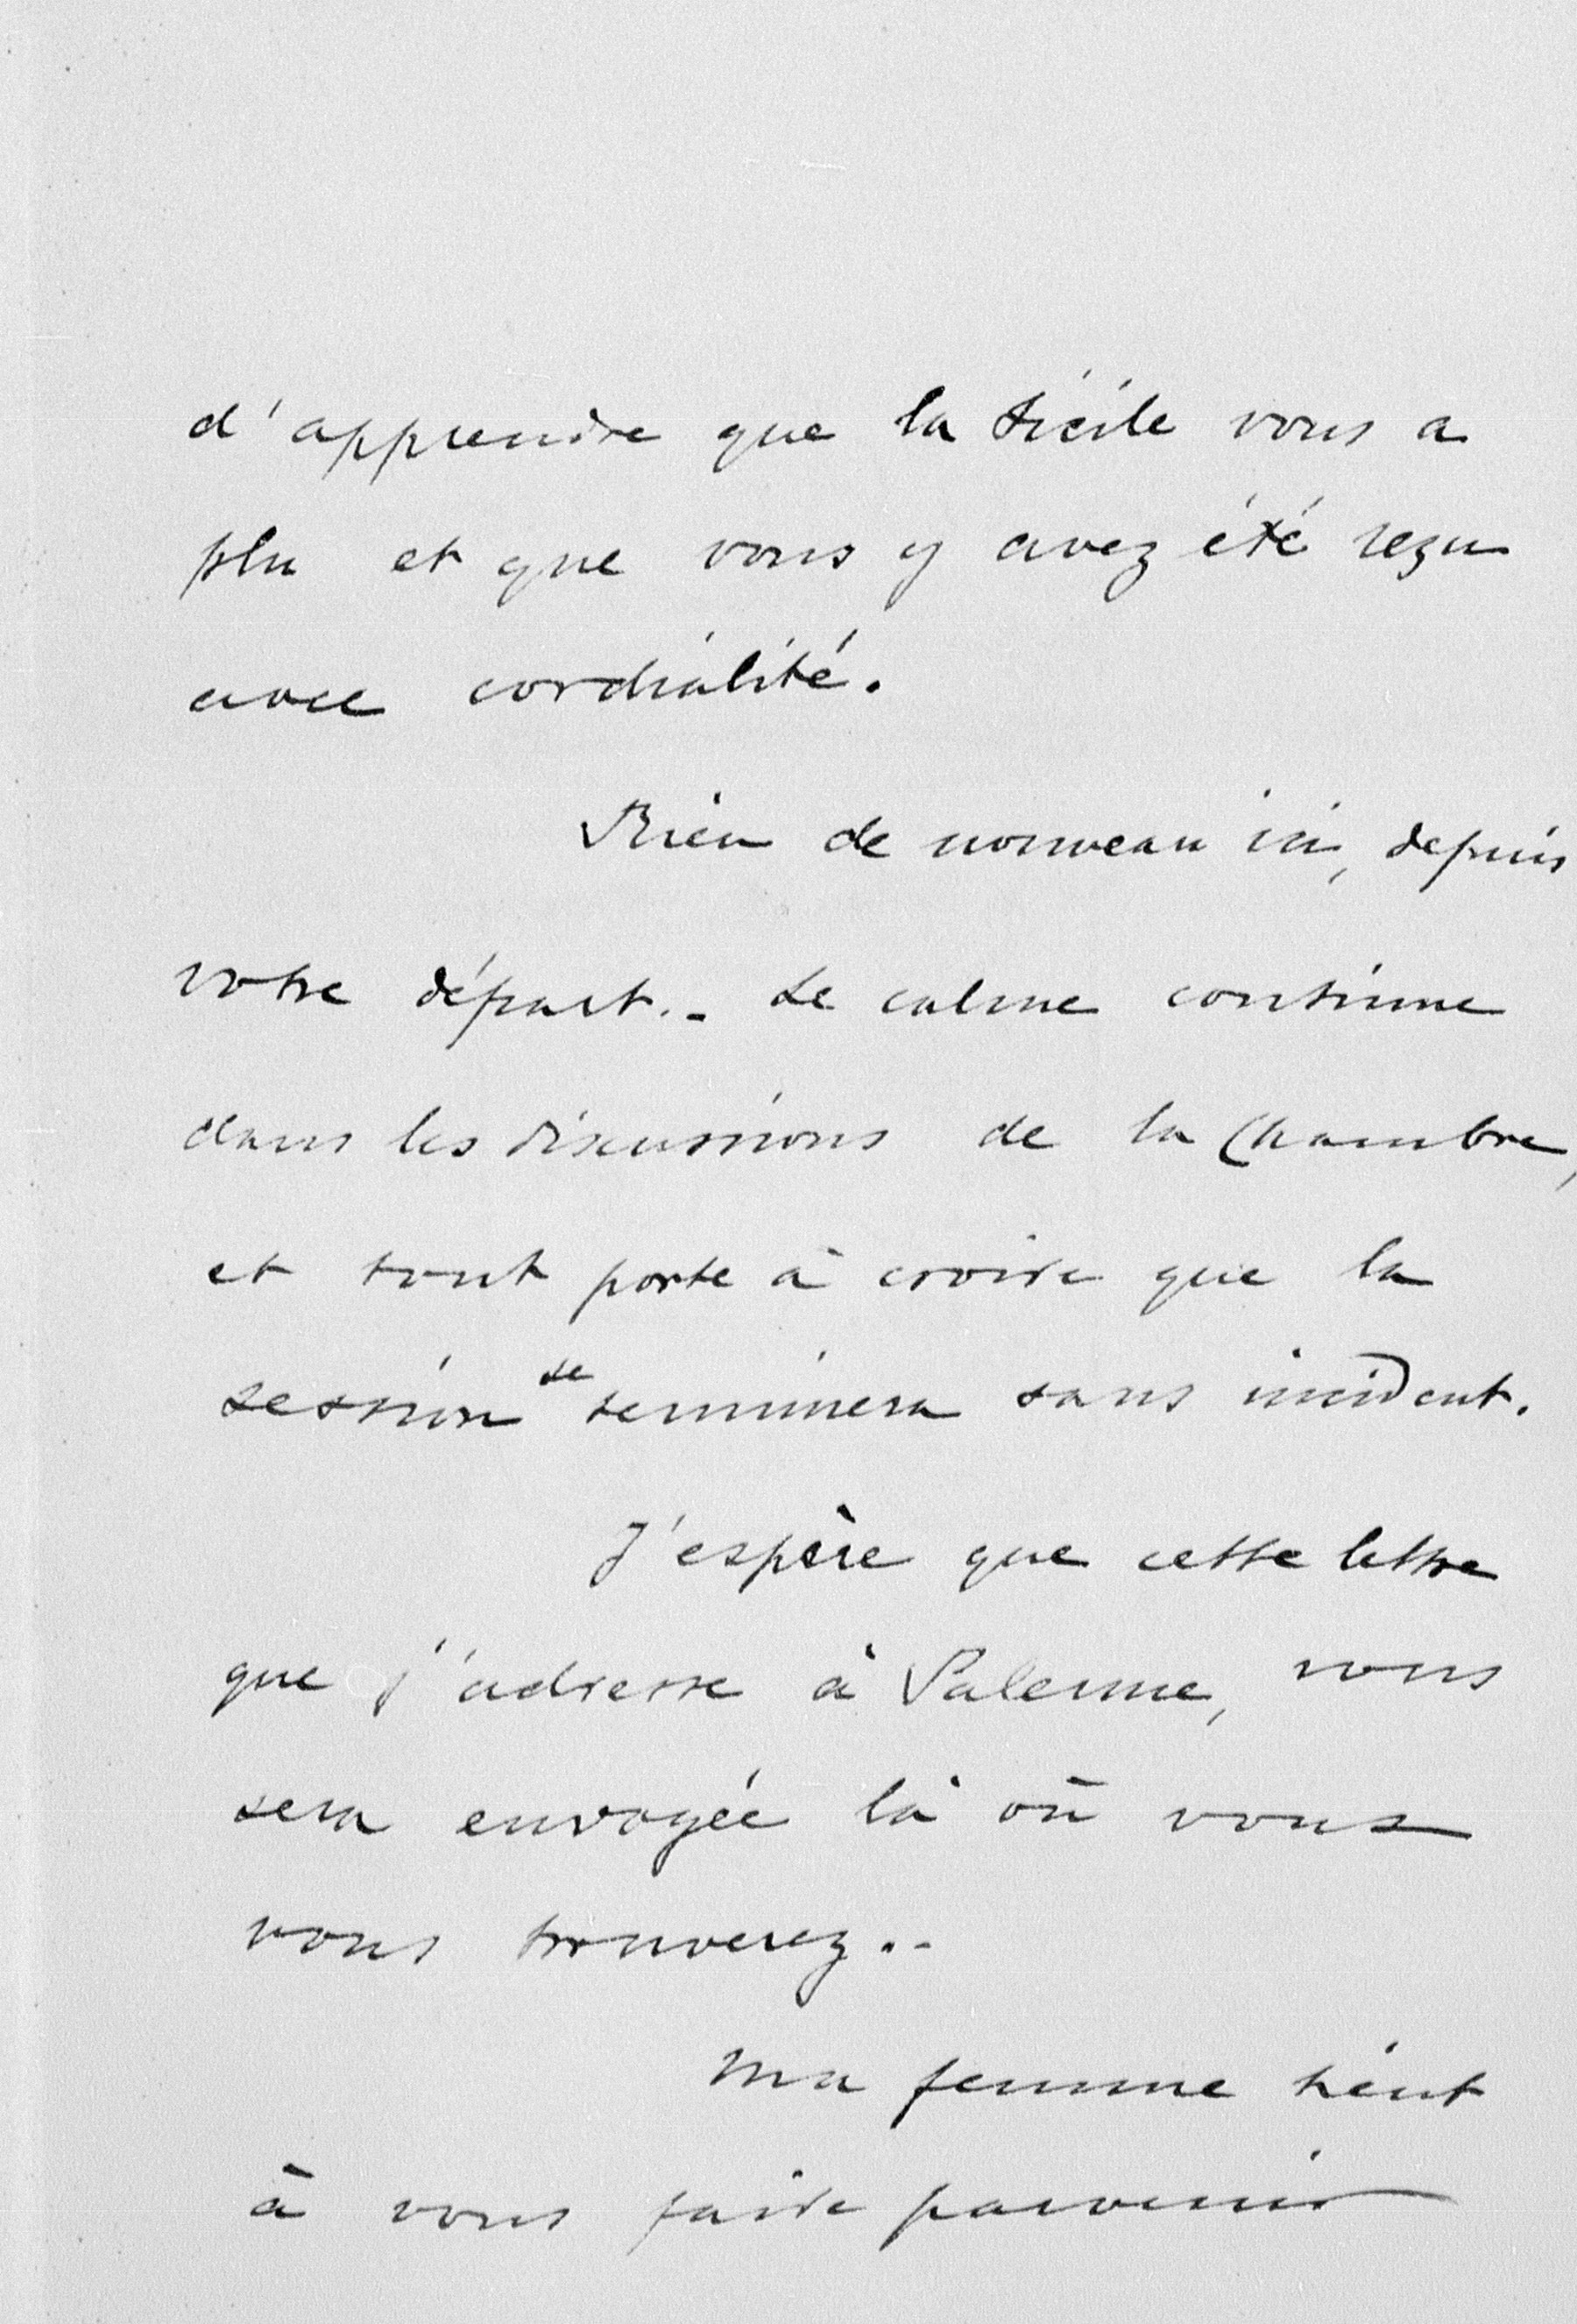 d'apprendre que la Sicile vous a
plu et que vous y avez été reçu
avec cordialité.
Rien de nouveau ici, depuis
votre départ. - Le calme continue
dans les discussions de la Chambre,
et tout porte à croire que la
session se terminera sans incident.
J'espère que cette lettre
que j'adresse à Palerme, vous
sera envoyée là où vous
vous trouverez. -
Ma femme tient
à vous faire parvenir